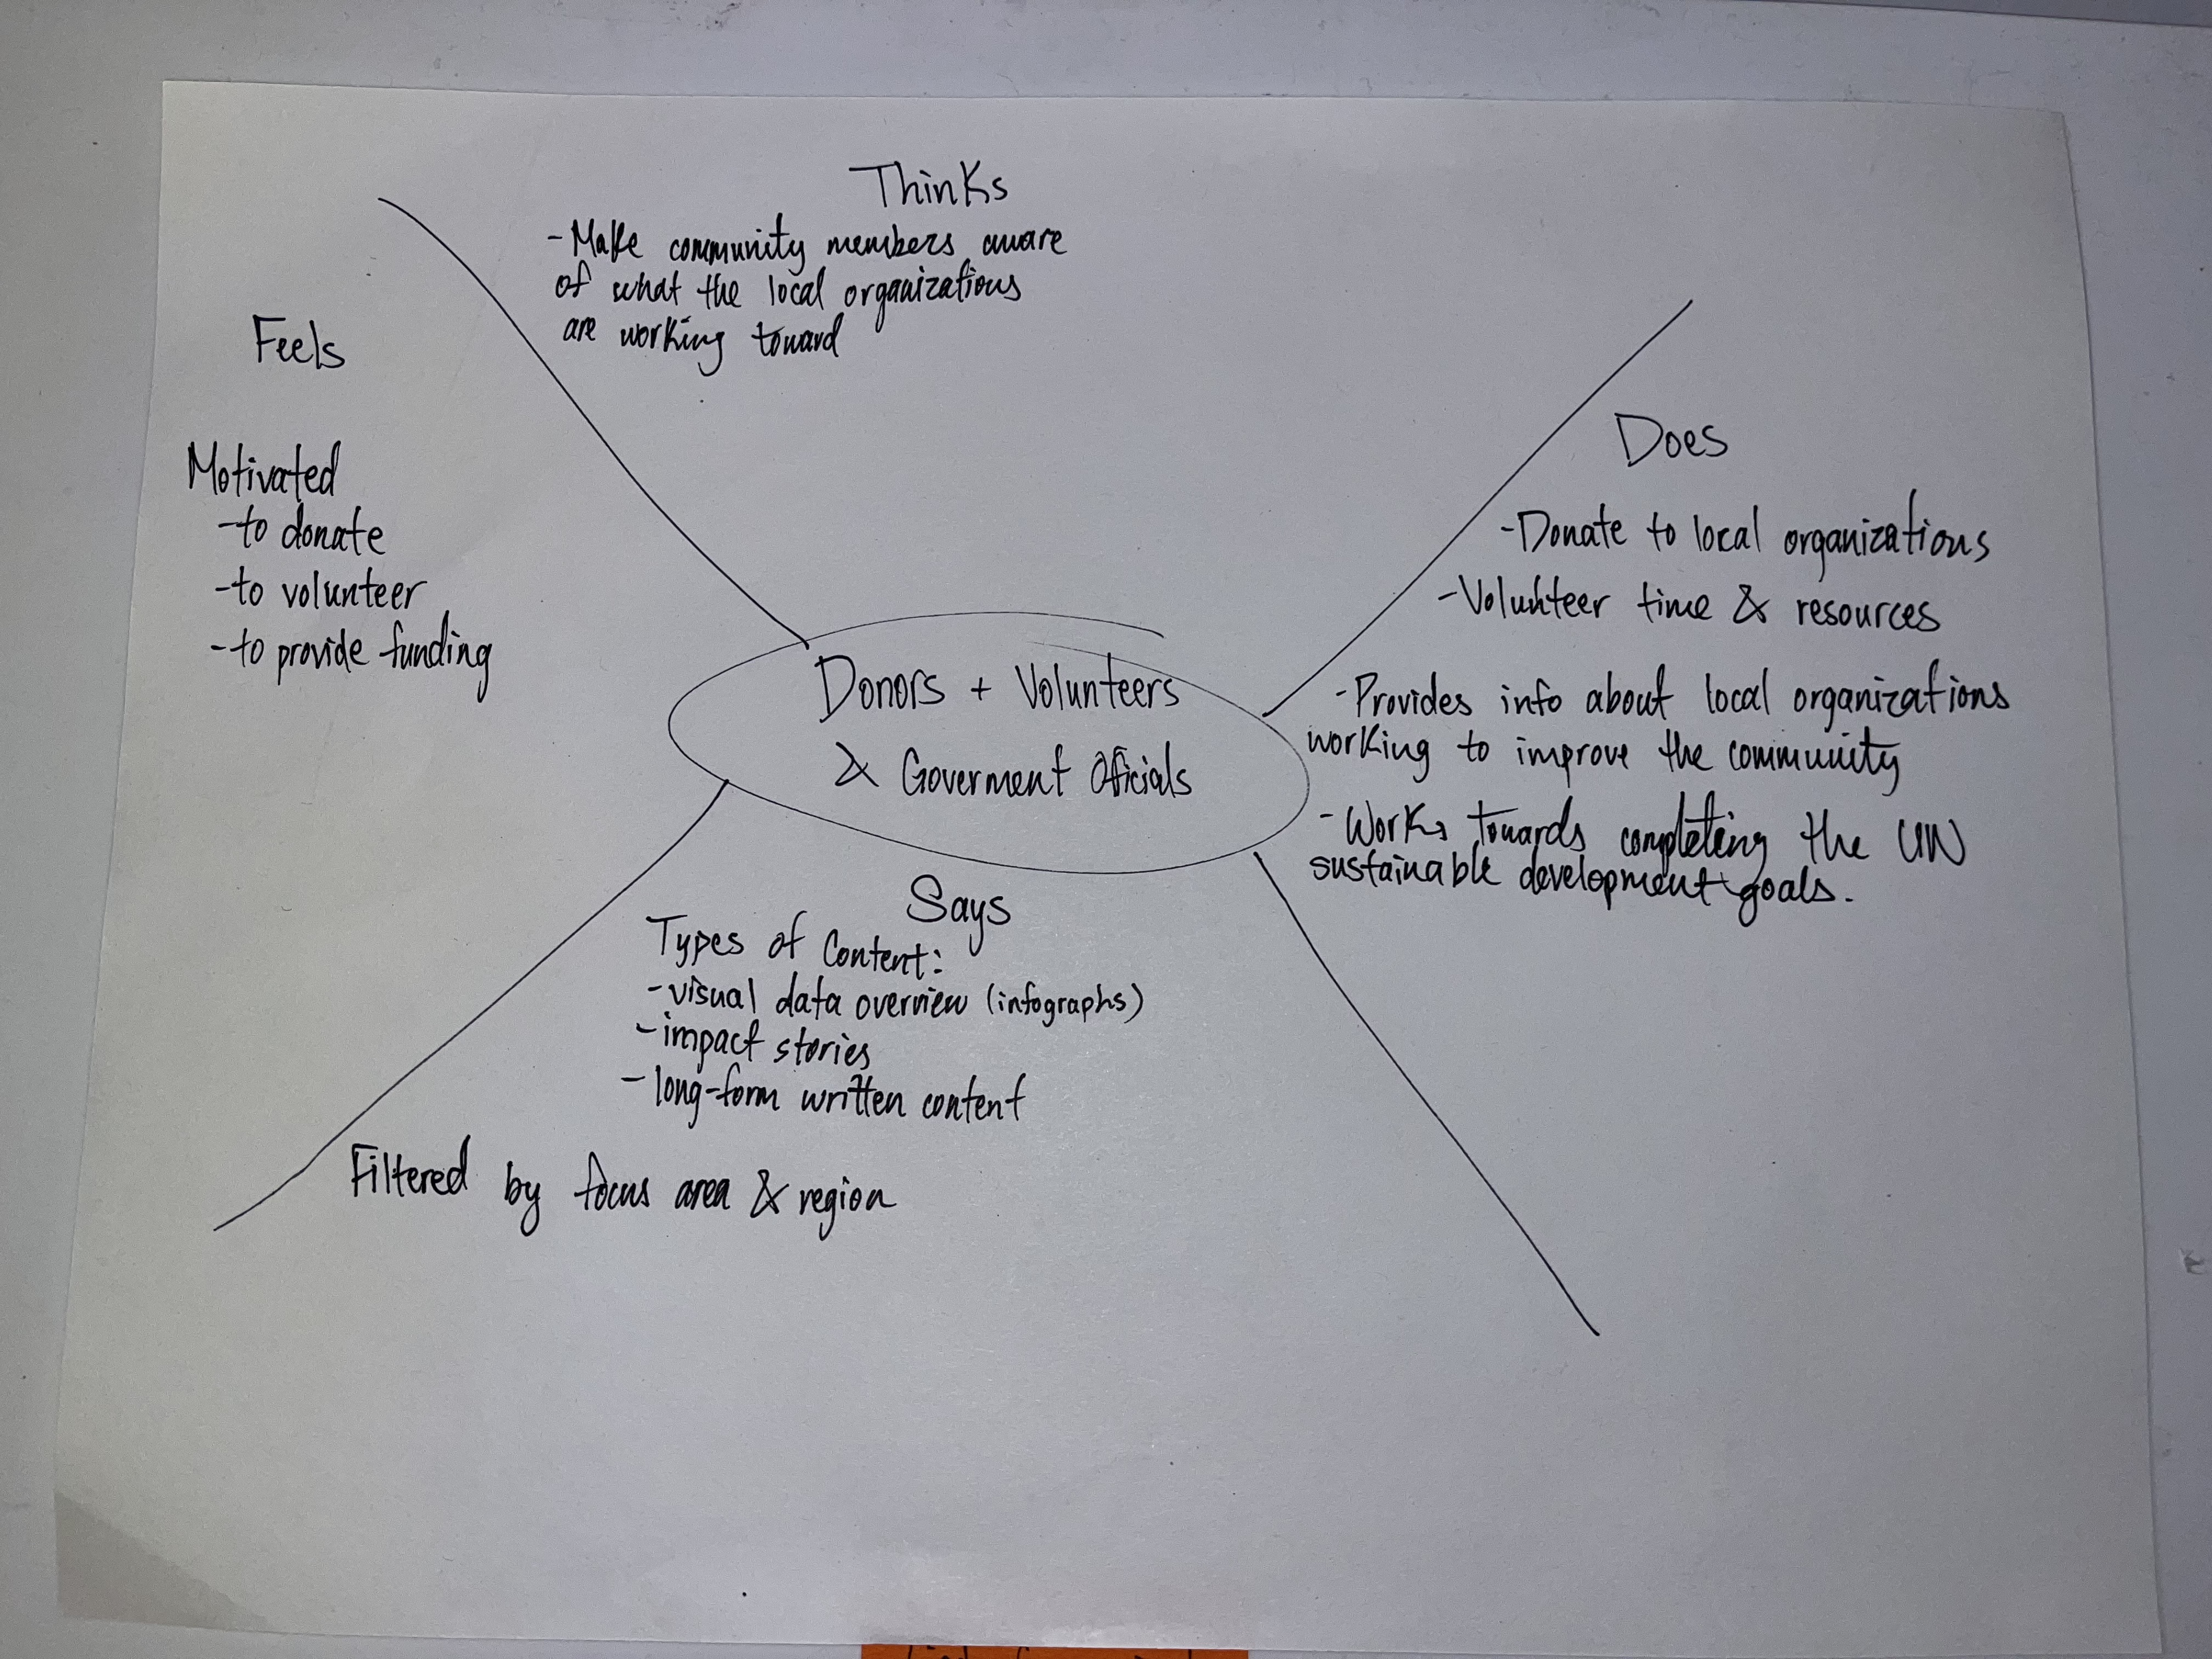 Thinks
-Make community members aware
of what the local organizations
are working toward
Feels
Motivated
-to donate
-to volunteer
-to provide funding
Does
-Donate to local organizations
-Volunteer time & resources
-Provides info about local organizations
working to improve the community
-Works towards completing the UN
sustainable development goals.
Donors + Volunteers
& Goverment Oficials
Says
Types of Content:
-visual data overview (infographs)
-impact stories
-long-form written content
Filtered by focus area & region